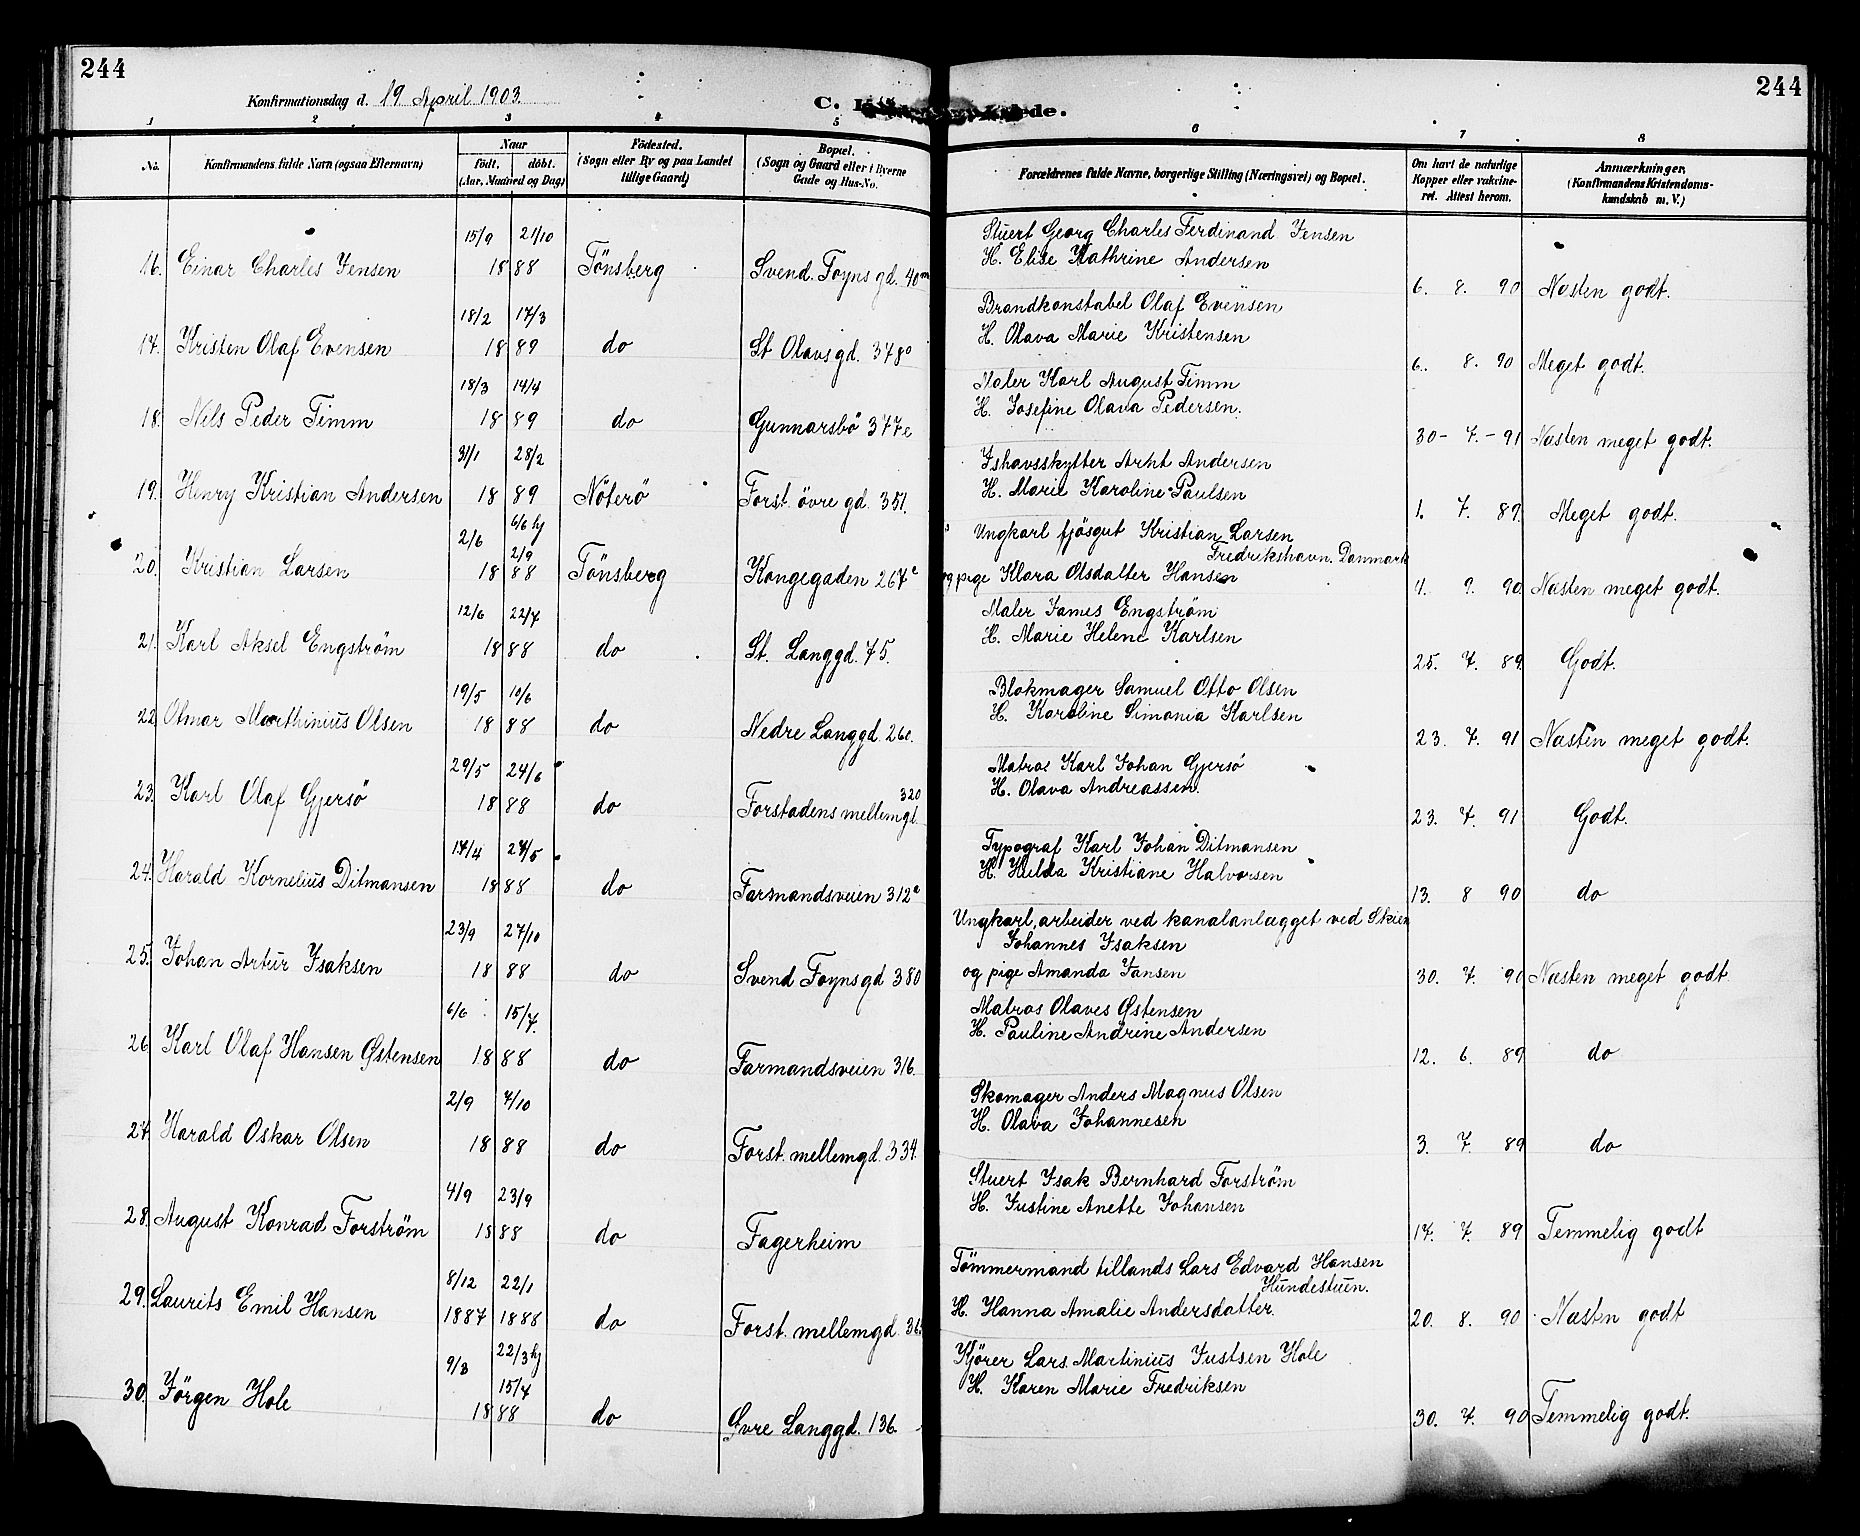 244
244
Konfirmationsdag d. 19 April 1903.
C.
1 2 3 4 5 6 7 8
No.
Konfirmandens fulde Navn (ogsaa Efternavn)
Naar
født. døbt.
(Aar, Maaned og Dag)
Födested.
(Sogn eller By og paa Landet
tillige Gaard)
Bopæl.
(Sogn og Gaard eller i Byerne
Gade og Hus-No.
Forældrenes fulde Navne, borgerlige Stilling (Næringsvei) og Bopæl.
Om havt de naturlige
Kopper eller vakcine-
ret. Attest herom.
Anmærkninger,
(Konfirmandens Kristendoms-
kundskab m. V.)
15/9 21/10 Stuert Georg Charles Ferdinand Jensen
16. Einar Charles Jensen 18 88 Tönsberg Svend Foyns gd. 40m H. Elise Kathrine Andersen 6. 8. 90 Næsten godt.
18/2 17/3 Brandkonstabel Olaf Evensen
17. Kristen Olaf Evensen 18 89 do St Olavs gd. 378o H. Olava Marie Kristensen 6. 8. 90 Meget godt.
18/3 14/4 Maler Karl August Timm
18. Nils Peder Timm 18 89 do Gunnarsbö 377e H. Josefine Olava Pedersen. 30- 7.- 91 Næsten meget godt.
31/1 28/2 Ishavsskytter Arnt Andersen
19. Henry Kristian Andersen 18 89 Nöterö Forst. övre gd. 351. H. Marie Karoline Paulsen 1. 7. 89. Meget godt.
2/6 6/6 hj 2/9 Ungkarl fjösgut Kristian Larsen
Fredrikshavn. Danmark
20. Kristian Larsen 18 88 Tönsberg Kongegaden 267e og pige Klara Olsdatter Hansen 4. 9. 90. Næsten meget godt.
12/6 22/7 Maler James Engström
21. Karl Aksel Engström 18 88 do St. Langgd. 75. H. Marie Helene Karlsen 25. 7. 89. Godt.
19/5 10/6 Blokmager Samuel Otto Olsen
22. Otmar Marthinius Olsen 18 88 do Nedre Langgd. 26e. H. Karoline Simonia Karlsen 23. 7. 91 Næsten meget godt.
29/5 24/6 Matros Karl Johan Gjersö
23. Karl Olaf Gjersö 18 88 do Forstadens mellemgt. 320 H. Olava Andreassen. 23. 7. 91 Godt.
17/4 27/5 Typograf Karl Johan Ditmansen
24. Harald Kornelius Ditmansen 18 88 do Farmandsveien 312e H. Hulda Kristiane Halvorsen 13. 8 90 do
23/9 27/10 Ungkarl, arbeider ved kanalanlægget ved Skien
Johannes Isaksen
25. Johan Artur Isaksen 18 88 do Svend Foyns gd 380 og pige Amanda Jansen 30. 7. 90 Næsten meget godt
6/6 15/7. Matros Olaves Østensen
26 Karl Olaf Hansen Østensen 18 88 do Farmandsveien 316. H. Pauline Andrine Andersen 12. 6. 89 do
2/9 7/10 Skomager Anders Magnus Olsen
27. Harald Oskar Olsen 18 88 do Forst. mellemgd. 334. H. Olava Johannesen 3. 7. 89 do
4/9 23/9 Stuert Isak Bernhard Forström
28. August Konrad Forström 18 88 do Fagerheim H. Justine Anette Johansen 17. 7. 89 Temmelig godt
8/12 22/1 Tömmermand tillands Lars Edvard Hansen
Hundestuen.
29. Laurits Emil Hansen 1887 1888 do Forst. mellemgd. H. Hanna Amalie Andersdatter. 20. 8. 90 Næsten godt
9/3 22/3 hj 15/4 Kjörer Lars Martinius Justsen Hole
30. Jörgen Hole 18 88 do Øvre Langgd. 136. H. Karen Marie Fredriksen 30. 7. 90 Temmelig godt.